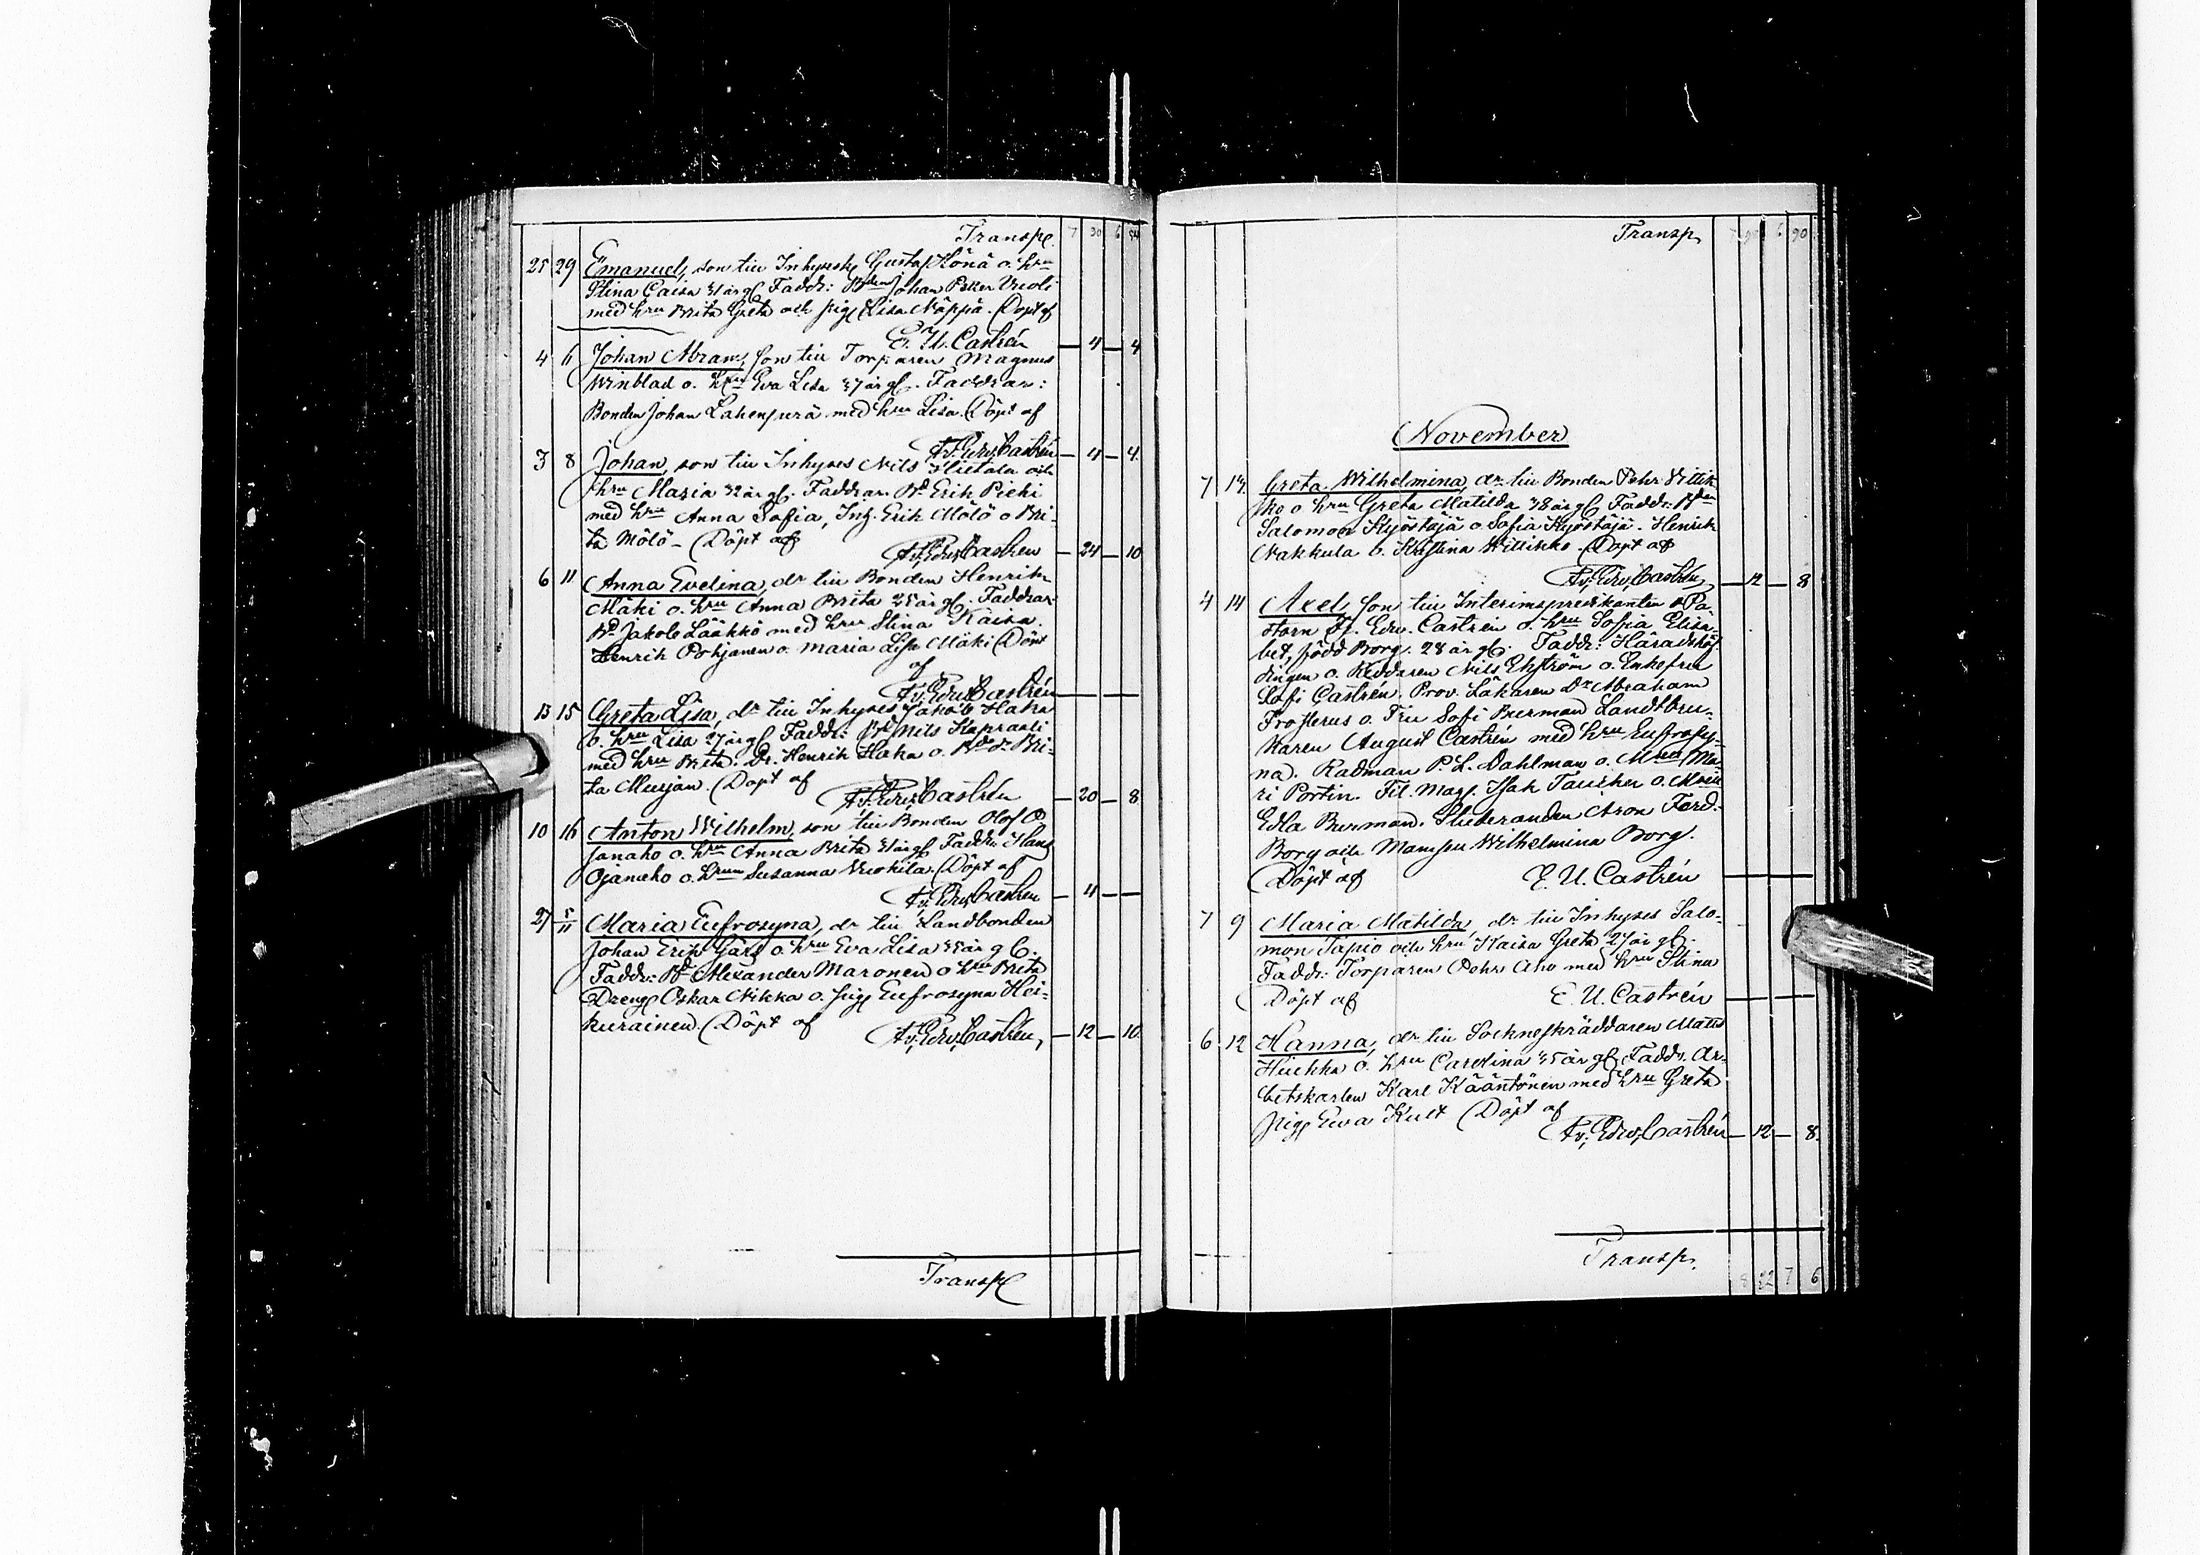 Transp. 7 30 6 54
25 29 Emanuel, son till Inhysesk Gustaf Könä o. hru
Stina Caisa 31 år gl. Faddr: Bden Johan Peter Vuoli
med hru Brita Greta och pig Lisa Näppä. Döpt af
E. U. Castrén — 4 — 4
4 6 Johan Abram, son till Torparen Magnus
Winblad o. hru Eva Lisa 37 år gl. Faddrar:
Bonden Johan Lahenperä med hru Lisa. Döpt af
Fr. Edv. Castrén — 4 — 4
3 8 Johan, son till Inhyses Nils Hietala och
hru Maria 32 år gl. Faddrar Bd Erik Piehi
med hru Anna Sofia, Inh. Erik Mölö o Bri-
ta Mölö — Döpt af Fr. Edv. Castrén — 24 — 10
6 11 Anna Evelina, dr till Bonden Henrik
Mäki o. hru Anna Brita 25 år gl. Faddrar
Bd Jakob Lääkkö med hru Stina Kaisa.
Henrik Pohjanen o. Maria Lisa Mäki Döpt
af
Fr. Edv. Castrén — — —
13 15 Greta Lisa, dr till Inhyses Jakob Haka
o. hru Lisa 27 år gl. Faddr: Bd Nils Kapraali
med hru Brita. Dr. Henrik Haka o. Bde dr Bri-
ta Marjan. Döpt af Fr. Edv. Castrén — 20 — 8
10 16 Anton Wilhelm, son till Bonden Olof O-
janaho o. hru Anna Brita 31 år gl. Faddr: Hans
Ojanaho o. hrun Susanna Vuokila. Döpt af
Fr. Edv. Castrén — 4 — —
27 5/11 Maria Eufrosyna, dr till Landbonden
Johan Erik Gärs o. hru Eva Lisa 35 år gl.
Faddr: Bd Alexander Maronen o hru Brita
Dreng Oskar Nikka o. pig Eufrosyna Hei-
kurainen. Döpt af Fr. Edv. Castrén, — 12 — 10
Transp
Transp. 90
November
7 13 Greta Wilhelmina, dr till Bonden Pehr Vittik-
ko o hru Greta Matilda 38 år gl. Faddr: Bden
Salomon Kyöstäjä o. Sofia Kyöstäjä. Henrik
Nakkula o. Kristina Wittikko. Döpt af
Fr. Edv. Castrén — 12 — 8
4 14 Axel, son till Interimspredikanten o Pa-
storn Fr. Edv. Castrén o. hru Sofia Elisa-
bet, född Borg. 28 år gl. Faddr: Häradshöf-
dingen o. Riddaren Nils Ekström o. Enkefru
Sofi Castrén. Prov. Läkaren Dr Abraham
Frosterus o. Fru Sofi Burman Landtbru-
karen August Castrén med hru Eufrosy-
na. Radman P. L. Dahlman o. Mna Ma-
ri Portin. Fil. Mag. Isak Taucher o. Mna
Edla Burman. Studeranden Aron Ferd.
Borg och Mamsell Wilhelmina Borg.
Döpt af E. U. Castrén
7 9 Maria Matilda, dr till Inhyses Salo-
mon Tapio och hru Kaisa Greta 27 år gl.
Faddr: Torparen Pehr Aho med hru Stina
Döpt af E. U. Castrén
6 12 Hanna, dr till Sockneskräddaren Matts
Hiukka o. hru Carolina 35 år gl. Faddr. Ar-
betskarlen Karl Kääntönen med hru Greta
pig Ewa Kult Döpt af
Fr. Edv. Castrén — 12 — 8
Transp.
8 22 7 6